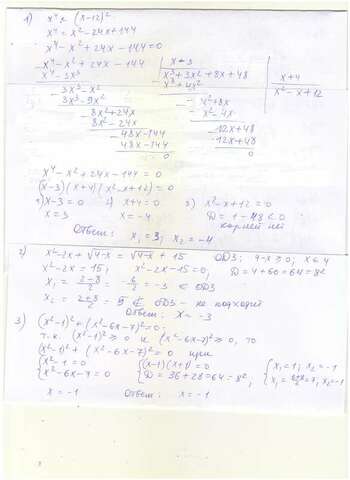 1) x⁴ = (x-12)²
x⁴ = x² - 24x + 144
x⁴ - x² + 24x - 144 = 0
x⁴ - x² + 24x - 144 | x - 3
x⁴ - 3x³ | x³ + 3x² + 8x + 48 | x + 4
3x³ - x² | x³ + 4x² | x² - x + 12
3x³ - 9x² | -x² + 8x
8x² + 24x | -x² - 4x
8x² - 24x | 12x + 48
48x - 144 | 12x + 48
48x - 144 | 0
0
x⁴ - x² + 24x - 144 = 0
(x-3)(x+4)(x² - x + 12) = 0
1) x - 3 = 0 2) x + 4 = 0 3) x² - x + 12 = 0
x = 3 x = -4 D = 1 - 48 < 0
корней нет
Ответ: x₁ = 3; x₂ = -4
2) x² - 2x + √4-x = √4-x + 15 ОДЗ: 4 - x ≥ 0; x ≤ 4
x² - 2x = 15; x² - 2x - 15 = 0; D = 4 + 60 = 64 = 8²
x₁ = 2-8/2 = -6/2 = -3 ∈ ОДЗ
x₂ = 2+8/2 = 5 ∉ ОДЗ - не подходит
Ответ: x = -3
3) (x²-1)² + (x² - 6x - 7)² = 0
т.к. (x²-1)² ≥ 0 и (x² - 6x - 7)² ≥ 0, то
(x²-1)² + (x² - 6x - 7)² = 0 при
{ x² - 1 = 0 { (x-1)(x+1) = 0 { x₁ = 1; x₂ = -1
{ x² - 6x - 7 = 0 { D = 36 + 28 = 64 = 8²; { x₁ = 7, x₂ = -1
x = -1 Ответ: x = -1